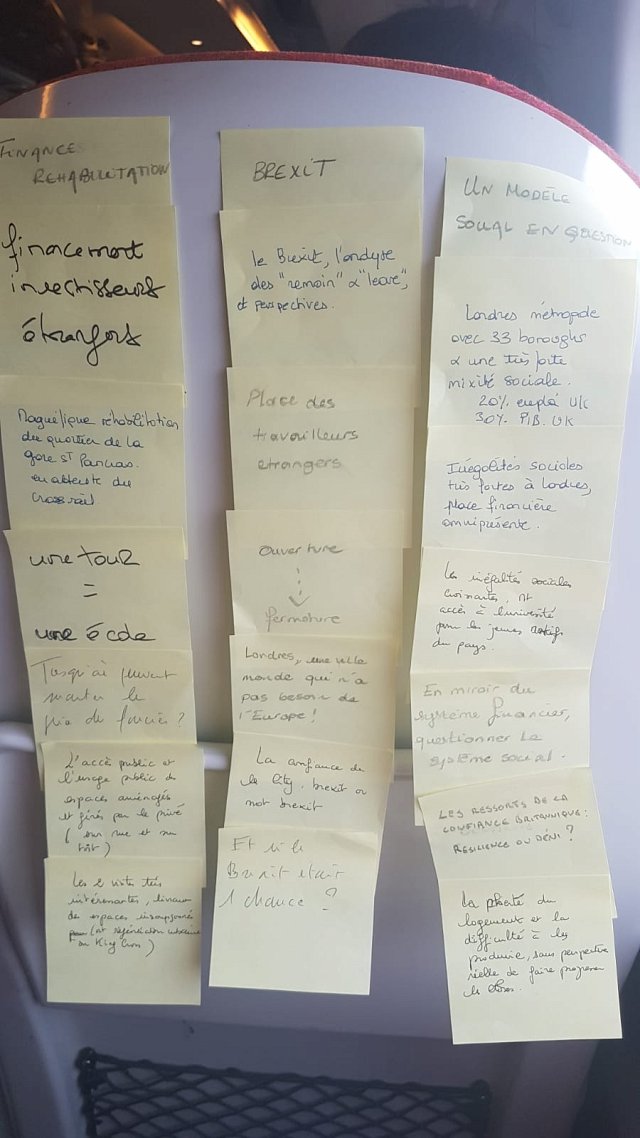 FINANCE
REHABILITATION
financement
investisseurs
étrangers
Magnifique réhabilitation
du quartier de la
gare St Pancras.
en attente du
crossrail.
une tour
=
une école
Jusqu'où peuvent
monter le
prix du foncier ?
L'accès public et
l'usage public des
espaces aménagés
et gérés par le privé
( sur rue et sur
toit )
Les 2 visites très
intéressantes,
des espaces insoupçonnés
( et régénération urbaine
au King Cross )
BREXIT
le Brexit, l'analyse
des "remain" & "leave",
et perspectives.
Place des
travailleurs
étrangers
Ouverture
fermeture
Londres, une ville
monde qui n'a
pas besoin de
l'Europe !
La confiance de
la City. brexit or
not brexit
Et si le
Brexit était
1 chance ?
UN MODÈLE
SOCIAL EN QUESTION
Londres métropole
avec 33 boroughs
& une très forte
mixité sociale.
20% emploi UK
30% PIB. UK
Inégalités sociales
très fortes à Londres,
place financière
omniprésente.
Les inégalités sociales
croissantes, et
accès à l'université
pour les jeunes actifs
du pays.
En miroir du
système financier,
questionner le
système social.
LES RESSORTS DE LA
CONFIANCE BRITANNIQUE :
RESILIENCE OU DÉNI ?
La cherté du
logement et la
difficulté à les
produire, sans perspective
réelle de faire progresser
les choses.